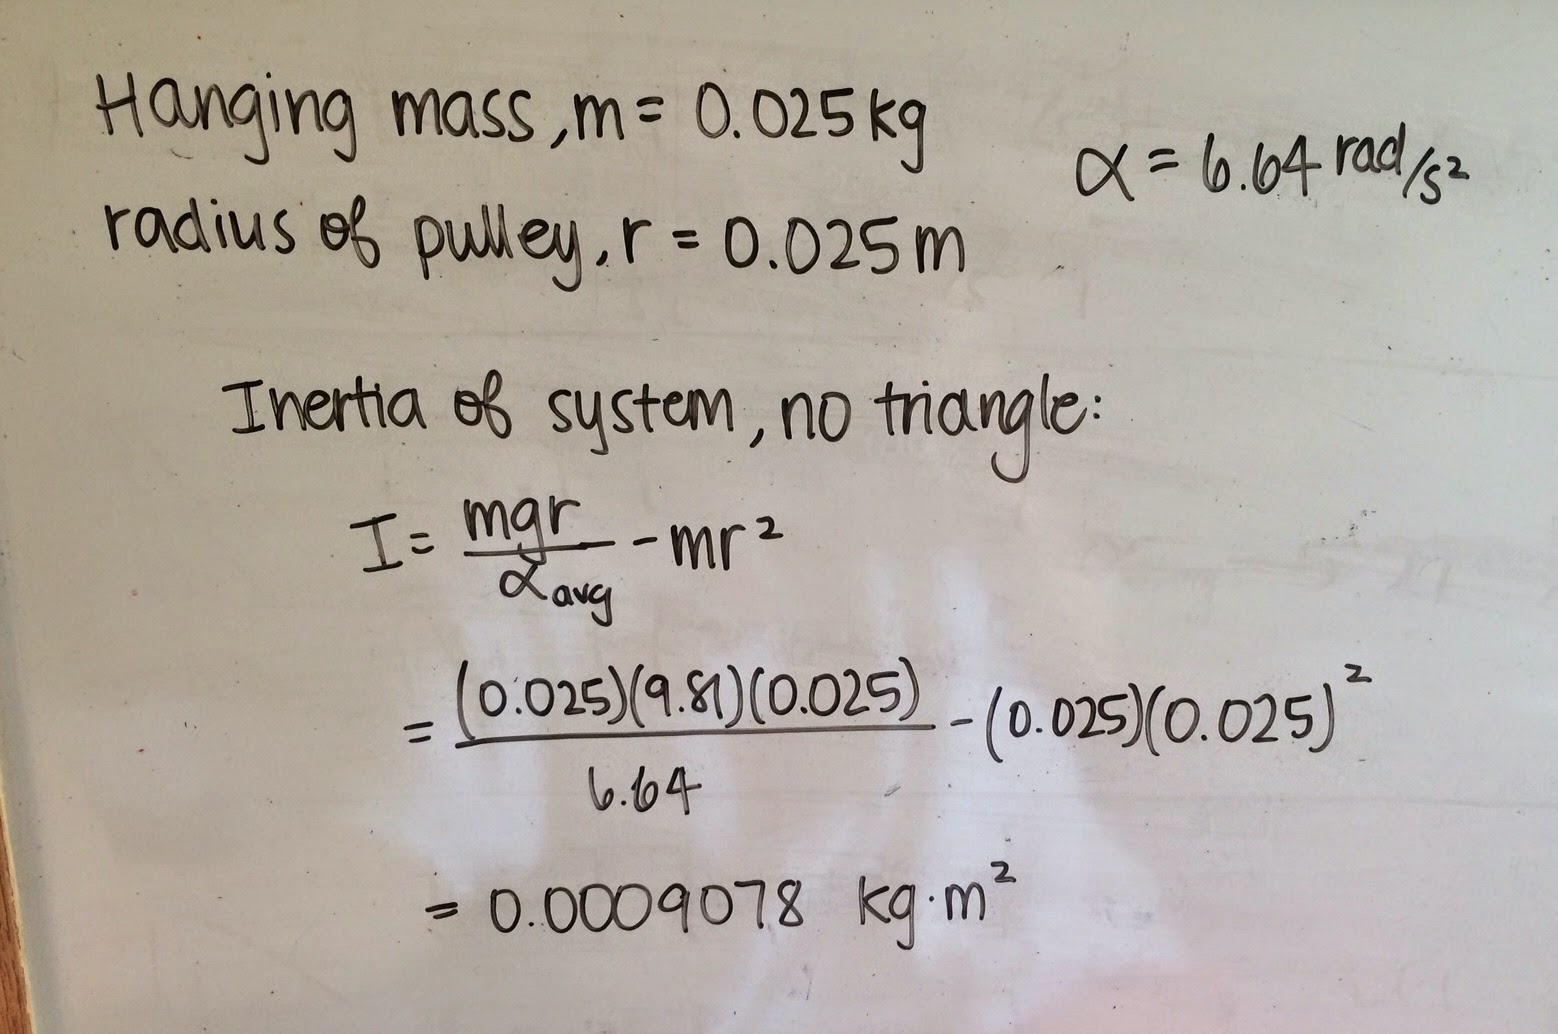 Hanging mass, m = 0.025 kg
α = 6.64 rad/s²
radius of pulley, r = 0.025 m
Inertia of system, no triangle:
I = mgr/αavg - mr²
= (0.025)(9.81)(0.025)/6.64 - (0.025)(0.025)²
= 0.0009078 kg·m²